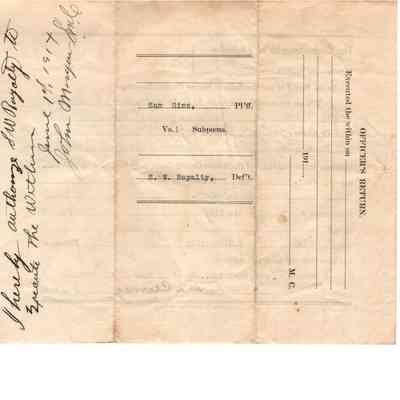 I hereby authorize S W Royalty to
Execute The Within
June 1st 1914
John
Sam Sims, Pl'ff.
Vs.: Subpoena.
S. W. Royalty, Def't.
OFFICER'S RETURN
Executed the within on
191
M. C.